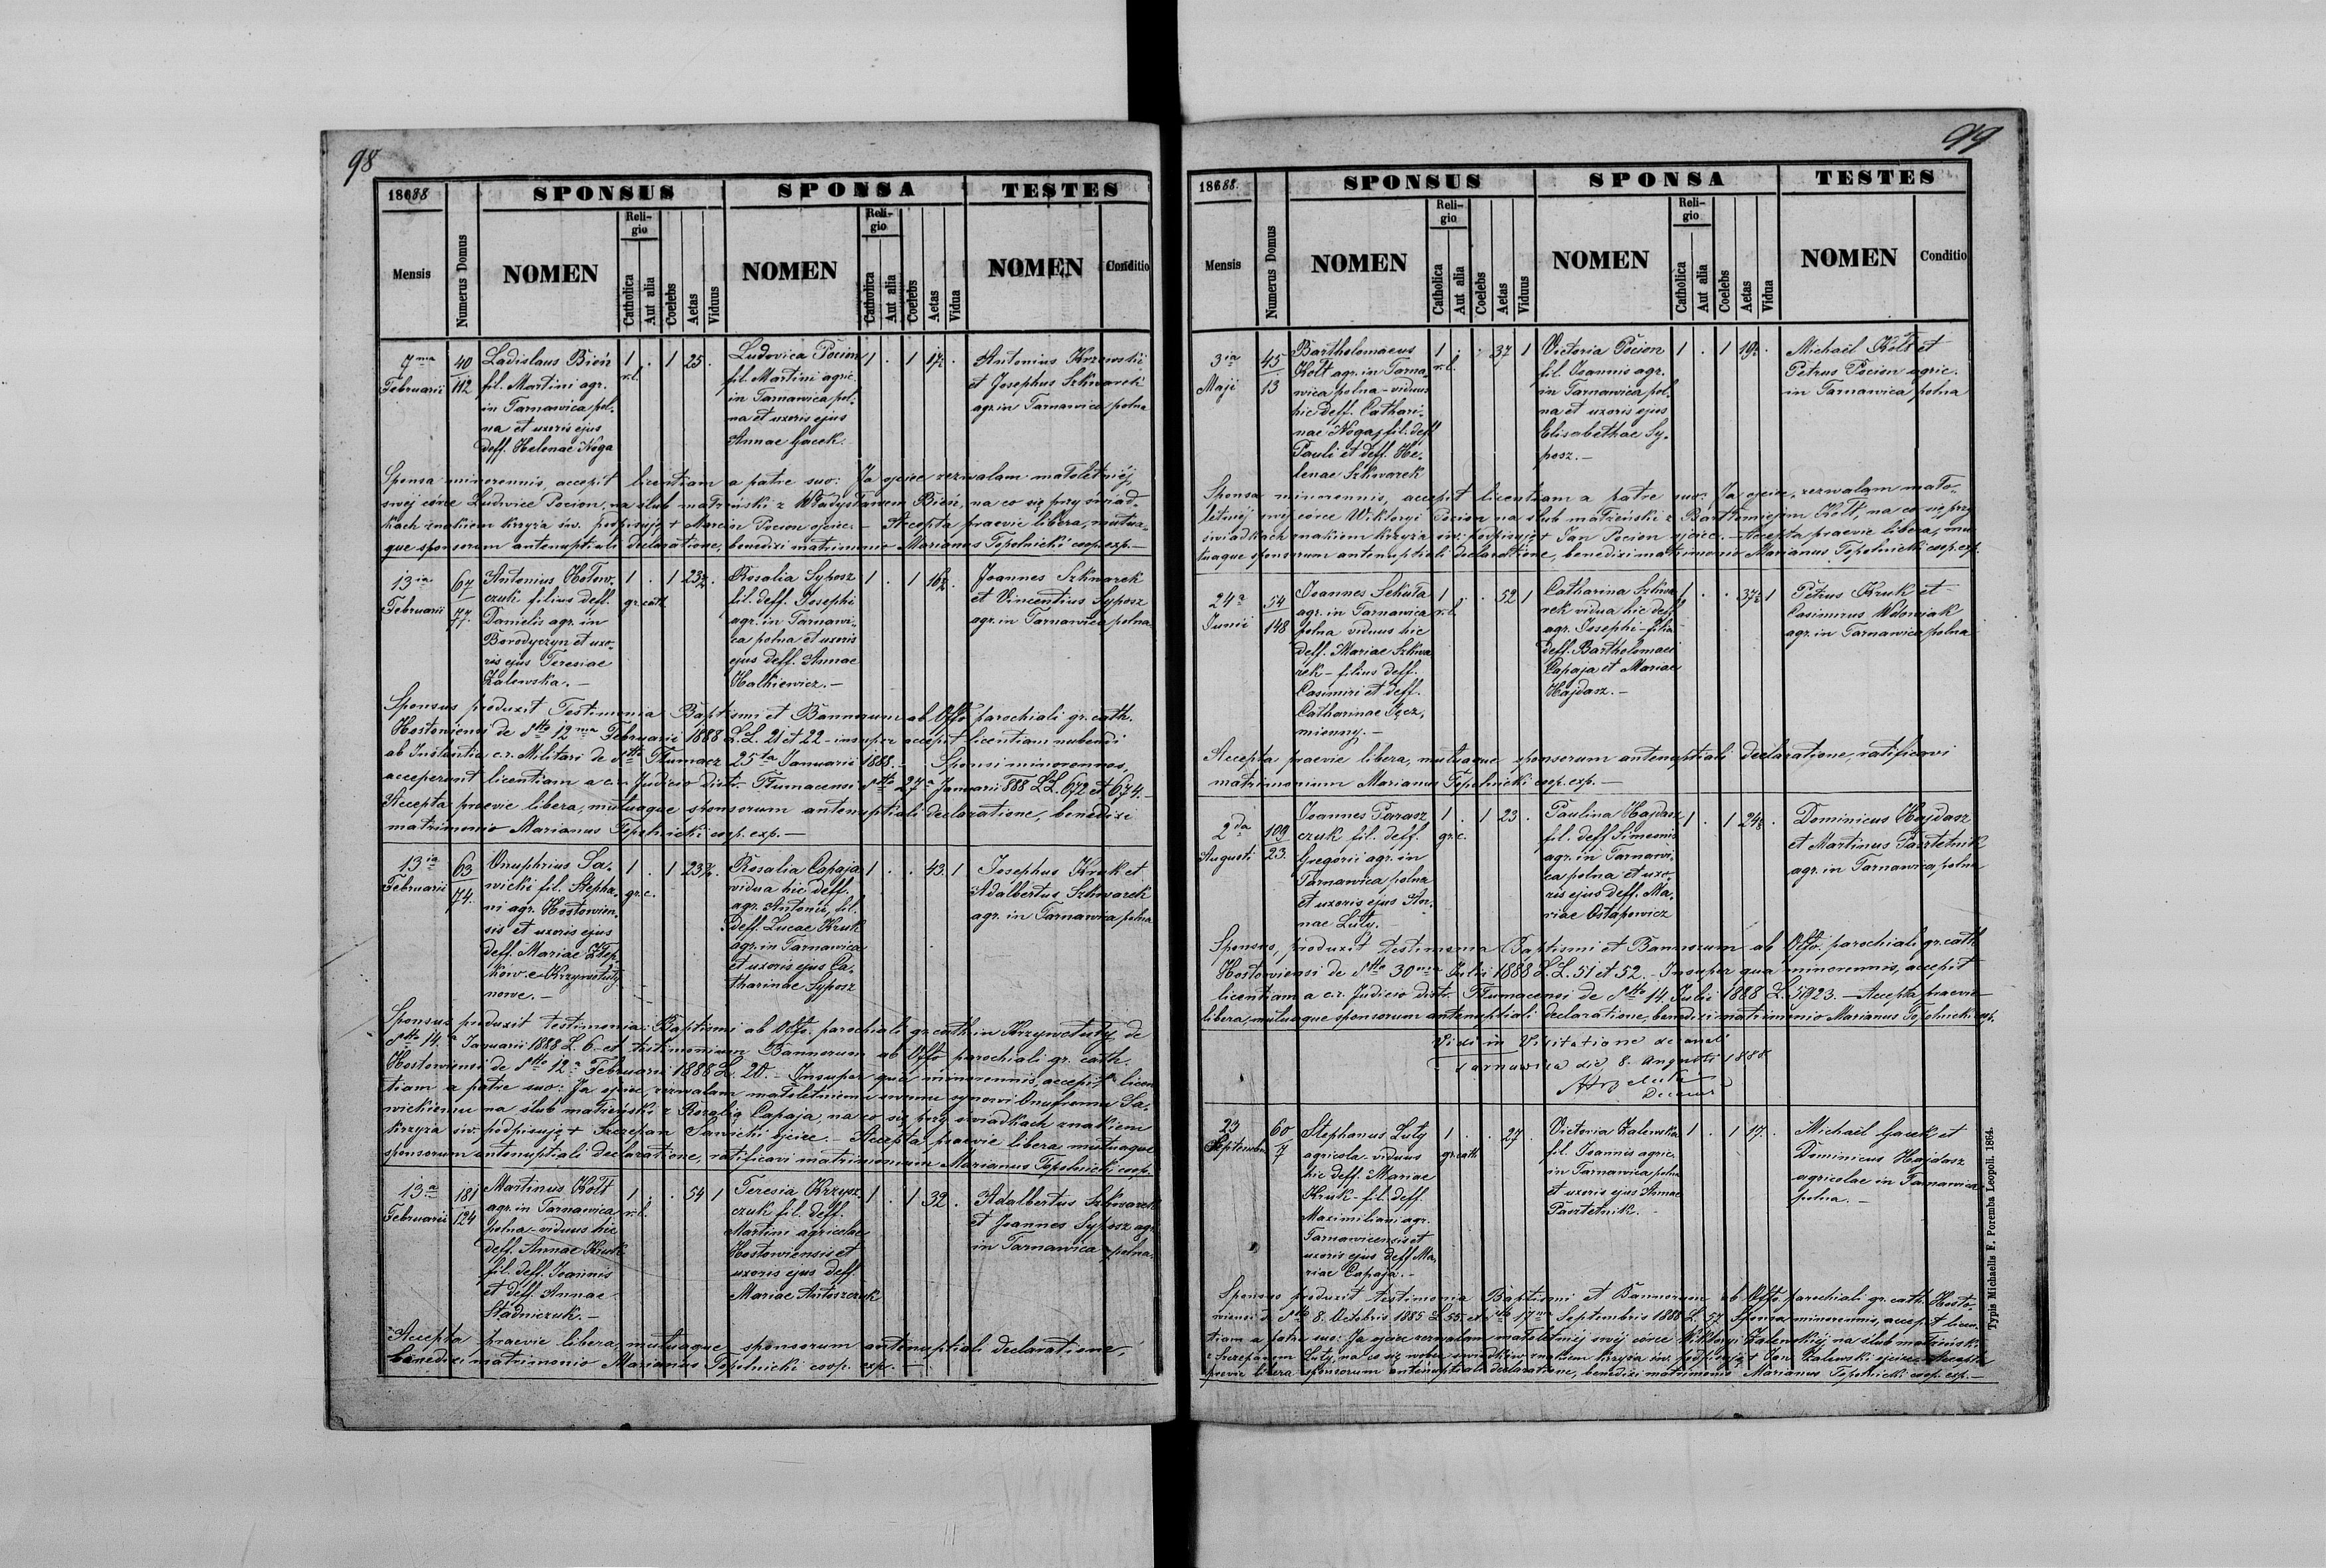 98
1888
SPONSUS
SPONSA
TESTES
Mensis
Numerus Domus
NOMEN
Religio
Catholica
Aut alia
Coelebs
Aetas
Viduus
NOMEN
Religio
Catholica
Aut alia
Coelebs
Aetas
Vidua
NOMEN
Conditio
7ma
Februarii
40
112
Ladislaus Bień
fil. Martini agr.
in Tarnawica pol-
na et uxoris ejus
deff. Helenae Noga
1 . 1 25 .
r.l.
Ludovica Pocion
fil. Martini agric.
in Tarnawica pol-
na et uxoris ejus
Annae Gacek.
1 . 1 17½ .
Antonius Krzewski
et Josephus Szkwarek
agr. in Tarnawica polna
Sponsa minorennis, accepit licentiam a patre suo: Ja ojciec zezwalam małoletniéj
swéj córce Ludwice Pocion, na ślub małżeński z Władysławem Bień, na co się przy świad-
kach znakiem krzyża św. podpisuję + Marcin Pocion ojciec. – Accepta praevie libera, mutua-
que sponsorum antenuptiali declaratione, benedixi matrimonio Marianus Topolnicki coop. exp. –
13ia
Februarii
67
77.
Antonius Hołow-
czuk filius deff.
Danielis agr. in
Borodyczyn et uxo-
ris ejus Teresiae
Zalewska. –
1 . 1 23¾ .
gr. cath
Rosalia Syposz
fil. deff. Josephi
agr. in Tarnawi-
ca polna et uxoris
ejus deff. Annae
Halkiewicz. –
1 . 1 16½ .
Joannes Szkwarek
et Vincentius Syposz
agr. in Tarnawica polna
Sponsus produxit Testimonia Baptismi et Bannorum ab Offo parochiali gr. cath.
Hostowiensi de dtto 12ma Februarii 1888 L.L. 21 et 22 – insuper accepit licentiam nubendi
ab Instantia c.r. Militari de dtto Tłumacz 25ta Januarii 1888. – Sponsi minorennes,
acceperunt licentiam a c.r. Judicio distr. Tłumacensi dtto 27a Januarii 888 LL. 672 et 674. –
Accepta praevie libera, mutuaque sponsorum antenuptiali declaratione, benedixi
matrimonio Marianus Topolnicki coop. exp. –
13ia
Februarii
63
74.
Onuphrius Sa-
wicki fil. Stepha-
ni agr. Hostowien-
sis et uxoris ejus
deff. Mariae
1 . 1 23¾ .
gr.c.
Rosalia Capaja
vidua hic deff.
agr. Antonii, fil.
deff. Lucae Kruk
agr. in Tarnawica
et uxoris ejus Ca-
tharinae Syposz
1 . . 43. 1
Josephus Kruk et
Adalbertus Szkwarek
agr. in Tarnawica polna
Sponsus produxit testimonia: Baptismi ab Offo. parochiali gr. cath. in Krzywotuły de
dtto 14.a Januarii 1888 L. 6 – et testimonium Bannorum ab Offo parochiali gr. cath.
Hostowiensi de dtto 12.a Februarii 1888 L. 20. – Insuper qua minorennis, accepit licen-
tiam a patre suo: Ja ojciec, zezwalam małoletniemu swemu synowi Onufremu Sa-
wickiemu na ślub małżeński z Rozalią Capaja, na co się przy świadkach znakiem
krzyża św. podpisuję + Szczepan Sawicki ojciec. – Accepta praevie libera mutuaque
sponsorum antenuptiali declaratione, ratificavi matrimonium Marianus Topolnicki coop.
13a
Februarii
181
124
Martinus Kołt
agr. in Tarnawica
polna – viduus hic
deff. Annae Kruk
fil. deff. Joannis
et deff. Annae
Stadniczuk. –
1 . . 54 1
r.l.
Teresia Krzysz-
czuk fil. deff.
Martini agricolae
Hostowiensis et
uxoris ejus deff.
Mariae Antoszczuk
1 . 1 32 .
Adalbertus Szkwarek
et Joannes Syposz agr.
in Tarnawica polna.
Accepta praevie libera, mutuaque sponsorum antenuptiali declaratione,
benedixi matrimonio Marianus Topolnicki coop. exp. –
99
1888.
SPONSUS
SPONSA
TESTES
Mensis
Numerus Domus
NOMEN
Religio
Catholica
Aut alia
Coelebs
Aetas
Viduus
NOMEN
Religio
Catholica
Aut alia
Coelebs
Aetas
Vidua
NOMEN
Conditio
3ia
Maji
45
13
Bartholomaeus
Kołt agr. in Tarna-
wica polna – viduus
hic deff. Cathari-
nae Noga, fil. deff
Pauli et deff. He-
lenae Szkwarek
1 . . 37 1
r.l.
Victoria Pocion
fil. Joannis agr.
in Tarnawica pol-
na et uxoris ejus
Elisabethae Sy-
posz. –
1 . 1 19½ .
Michaël Kołt et
Petrus Pocion agric.
in Tarnawica polna
Sponsa minorennis, accepit licentiam a patre suo: Ja ojciec, zezwalam mało-
letniéj swéj córce Wiktoryi Pocion na ślub małżeński z Bartłomiejem Kołt, na co się przy
świadkach znakiem krzyża św. podpisuję + Jan Pocion ojciec. – Accepta praevie libera, mu-
tuaque sponsorum antenuptiali declaratione, benedixi matrimonio Marianus Topolnicki coop. exp.
24a
Junii
54
148
Joannes Sekuła
agr. in Tarnawica
polna viduus hic
deff. Mariae Szkwa-
rek – filius deff.
Casimiri et deff.
Catharinae Jęcz-
mionny. –
1 . . 52 1
r.l.
Catharina Szkwa-
rek vidua hic deff
agr. Josephi – filia
deff. Bartholomaei
Capaja et Mariae
Hajdasz. –
1 . . 37½ 1
Petrus Kruk et
Casimirus Wdowiak
agr. in Tarnawica polna
Accepta praevie libera, mutuaque sponsorum antenuptiali declaratione, ratificavi
matrimonium Marianus Topolnicki coop. exp. –
2da
Augusti
109
23.
Joannes Parasz-
czuk fil. deff.
Gregorii agr. in
Tarnawica polna
et uxoris ejus An-
nae Luty. –
1 . 1 23 .
gr.c.
Paulina Hajdasz
fil. deff Simeonis
agr. in Tarnawi-
ca polna et uxo-
ris ejus deff. Ma-
riae Ostapowicz
1 . 1 24½ .
Dominicus Hajdasz
et Martinus Pasztetnik
agr. in Tarnawica polna
Sponsus, produxit testimonia Baptismi et Bannorum ab Offo. parochiali gr. cath.
Hostowiensi de dtto 30ma Julii 1888 L.L. 51 et 52. – Insuper qua minorennis, accepit
licentiam a c.r. Judicio distr. Tłumacensi de dtto 14. Julii 1888 L. 5923. – Accepta praevie
libera, mutuaque sponsorum antenuptiali declaratione, benedixi matrimonio Marianus Topolnicki coop.
Vidi in Visitatione decanali
Tarnawica die 8. Augusti 1888
23
Septembr.
60
7
Stephanus Luty
agricola. viduus
hic deff. Mariae
Kruk – fil. deff.
Maximiliani agr.
Tarnawicensis et
uxoris ejus deff Ma-
riae Capaja. –
1 . . 27 .
gr. cath
Victoria Zalewska
fil. Joannis agric.
in Tarnawica polna
et uxoris ejus Annae
Pasztetnik. –
1 . 1 17. .
Michaël Gacek et
Dominicus Hajdasz
agricolae in Tarnawica
polna. –
Sponsus produxit testimonia Baptismi et Bannorum ab Offo. parochiali gr. cath. Hosto-
wiensi d. dtto 8. Octobris 1885 L. 55. et dtto 17ma Septembris 1888 L. 57. Sponsa minorennis, accepit licen-
tiam a patre suo: Ja ojciec zezwalam małoletniéj swéj córce Wiktoryi Zalewskiéj na ślub małżeński
z Szczepanem Luty, na co się wobec świadków znakiem krzyża św. podpisuję + Jan Zalewski ojciec. – Accepta
praevie libera sponsorum antenuptiali declaratione, benedixi matrimonio Marianus Topolnicki coop. exp. –
Typis Michaelis F. Poremba Leopoli. 1864.